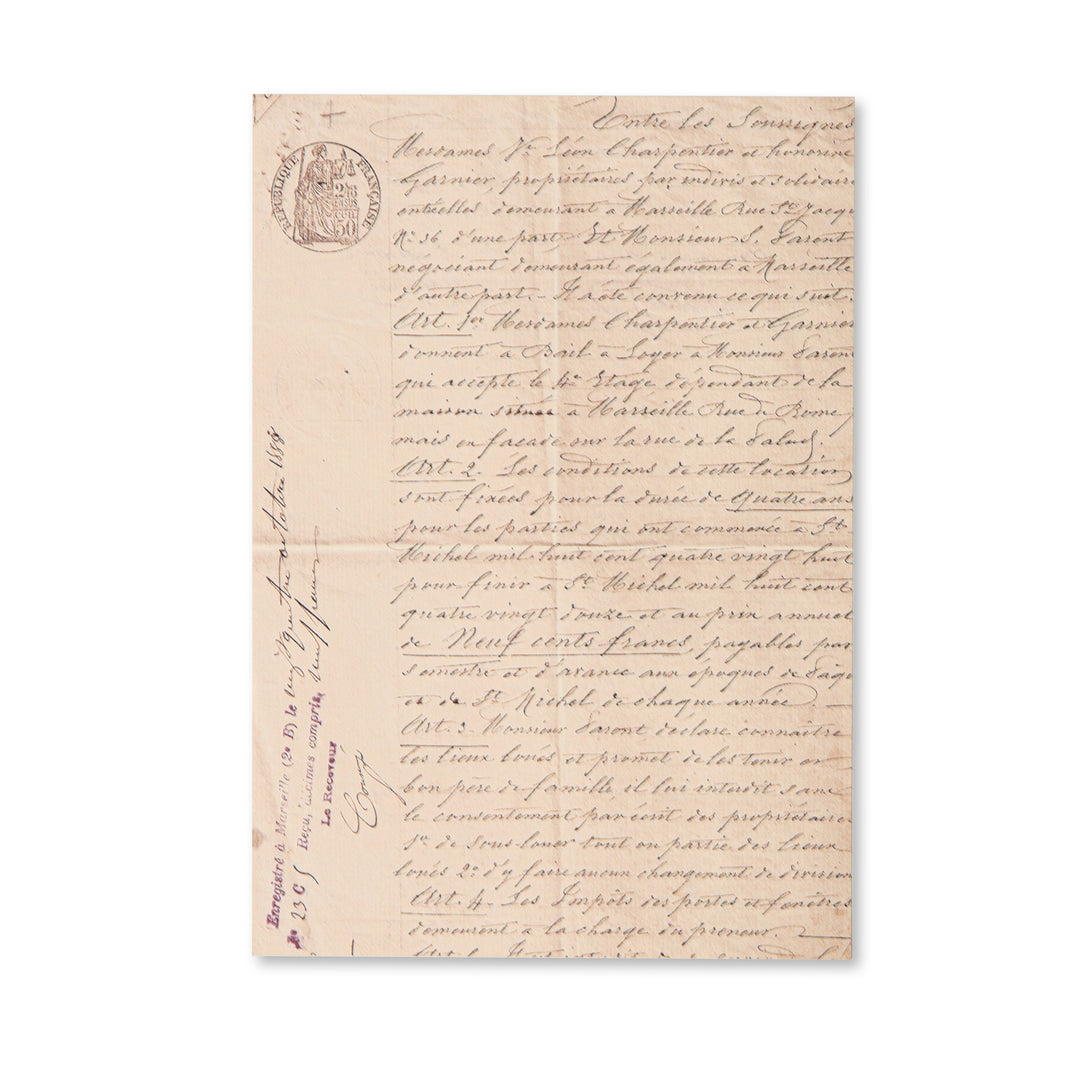 Entre les Soussignés
Mesdames Vve Léon Charpentier et honorine
Garnier, propriétaires par indivis et solidaire
entr'elles demeurant à Marseille Rue St Jacqu
No 36 d'une part, Et Monsieur S. Parent
négociant demeurant également à Marseille
d'autre part. - Il a été convenu ce qui suit.
Art. 1er Mesdames Charpentier et Garnier
donnent à Bail à Loyer à Monsieur Parent
qui accepte le 4e Etage dépendant de la
maison située à Marseille Rue de Rome,
mais en façade sur la rue de la Palud.
Art. 2. Les conditions de cette location
sont fixées pour la durée de quatre ans
pour les parties qui ont commencé à St
Michel mil huit cent quatre vingt huit
pour finir à St Michel mil huit cent
quatre vingt douze et au prix annuel
de Neuf cents francs, payables par
semestre et d'avance aux époques de Pâqu
et de St Michel de chaque année. —
Art. 3. Monsieur Parent déclare connaître
les lieux loués et promet de les tenir en
bon père de famille, il lui interdit sans
le consentement par écrit des propriétaires
1o de sous-louer tout ou partie des lieux
loués 2o d'y faire aucun changement de division
Art. 4. Les Impôts des portes et fenêtres
demeurent à la charge du preneur. —
RÉPUBLIQUE FRANÇAISE
50
Enregistré à Marseille (2e B) le vingt quatre octobre 1888
No 23 C 5 Reçu, décimes compris, neuf francs
Le Receveur